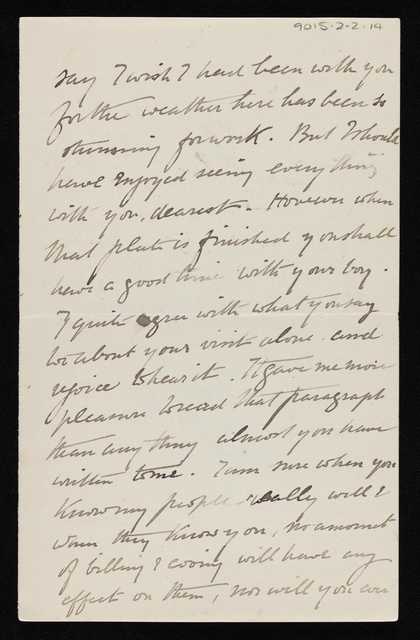 9015-2-2-14
say I wish I had been with you
for the weather here has been so
stunning for work. But I should
have enjoyed seeing everything
with you, dearest. However when
that plate is finished you shall
have a good time with your boy.
I quite agree with what you say
about your visit alone and
rejoice to hear it. It gave me more
pleasure to read that paragraph
than any thing almost you have
written to me. I am sure when you
know my people really well &
when they know you, no amount
of billing & cooing will have any
effect on them, nor will you